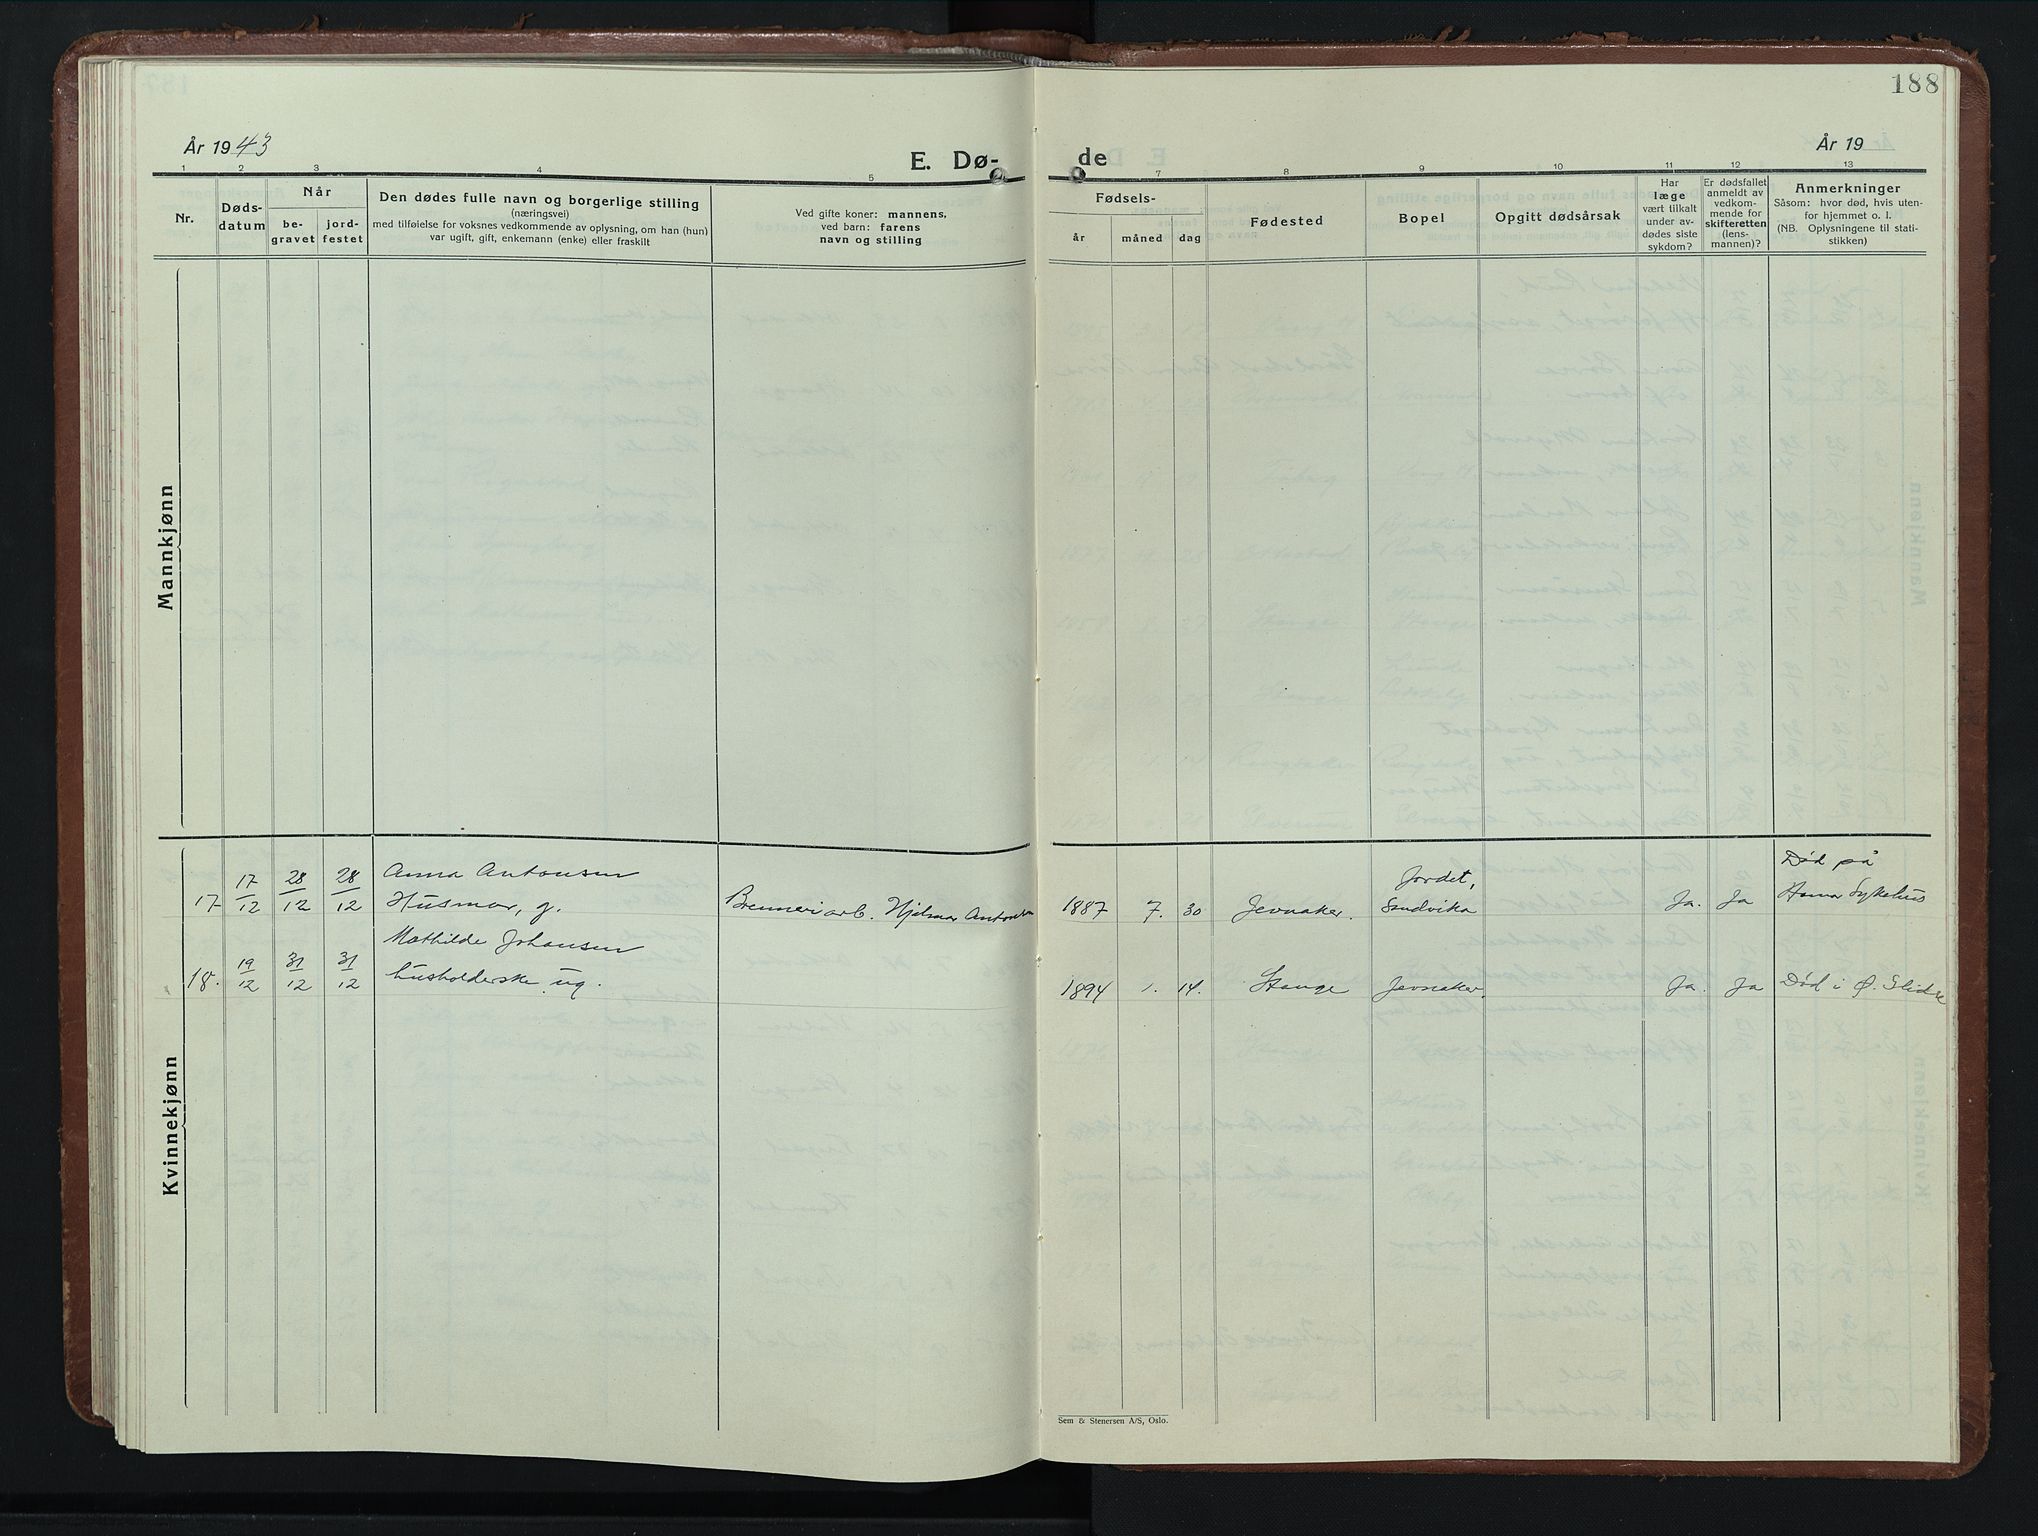 188
År 1943
E. Dø-
de
År 19
1 2 3 4 5
7 8 9 10 11 12 13
Nr.
Døds-
datum
Når
be-
gravet
jord-
festet
Den dødes fulle navn og borgerlige stilling
(næringsvei)
med tilføielse for voksnes vedkommende av oplysning, om han (hun)
var ugift, gift, enkemann (enke) eller fraskilt
Ved gifte koner: mannens,
ved barn: farens
navn og stilling
Fødsels-
år måned dag
Fødested
Bopel
Opgitt dødsårsak
Har
læge
vært tilkalt
under av-
dødes siste
sykdom?
Er dødsfallet
anmeldt av
vedkom-
mende for
skifteretten
(lens-
mannen)?
Anmerkninger
Såsom: hvor død, hvis uten-
for hjemmet o. l.
(NB. Oplysningene til stati-
stikken)
Mannkjønn
Kvinnekjønn
17 17/12 28/12 28/12 Anna Antonsen
Husmor, g. Brenneriarb. Hjelmar Antonsen 1887 7. 30 Jevnaker. Jordet,
Sandvika Ja. Ja Død på
Hamar Sykehus
18. 19/12 31/12 31/12 Mathilde Johansen
husholderske ug. 1894 1. 14. Stange Jevnaker. Ja. Ja Død i Ø. Slidre
Sem & Stenersen A/S, Oslo.